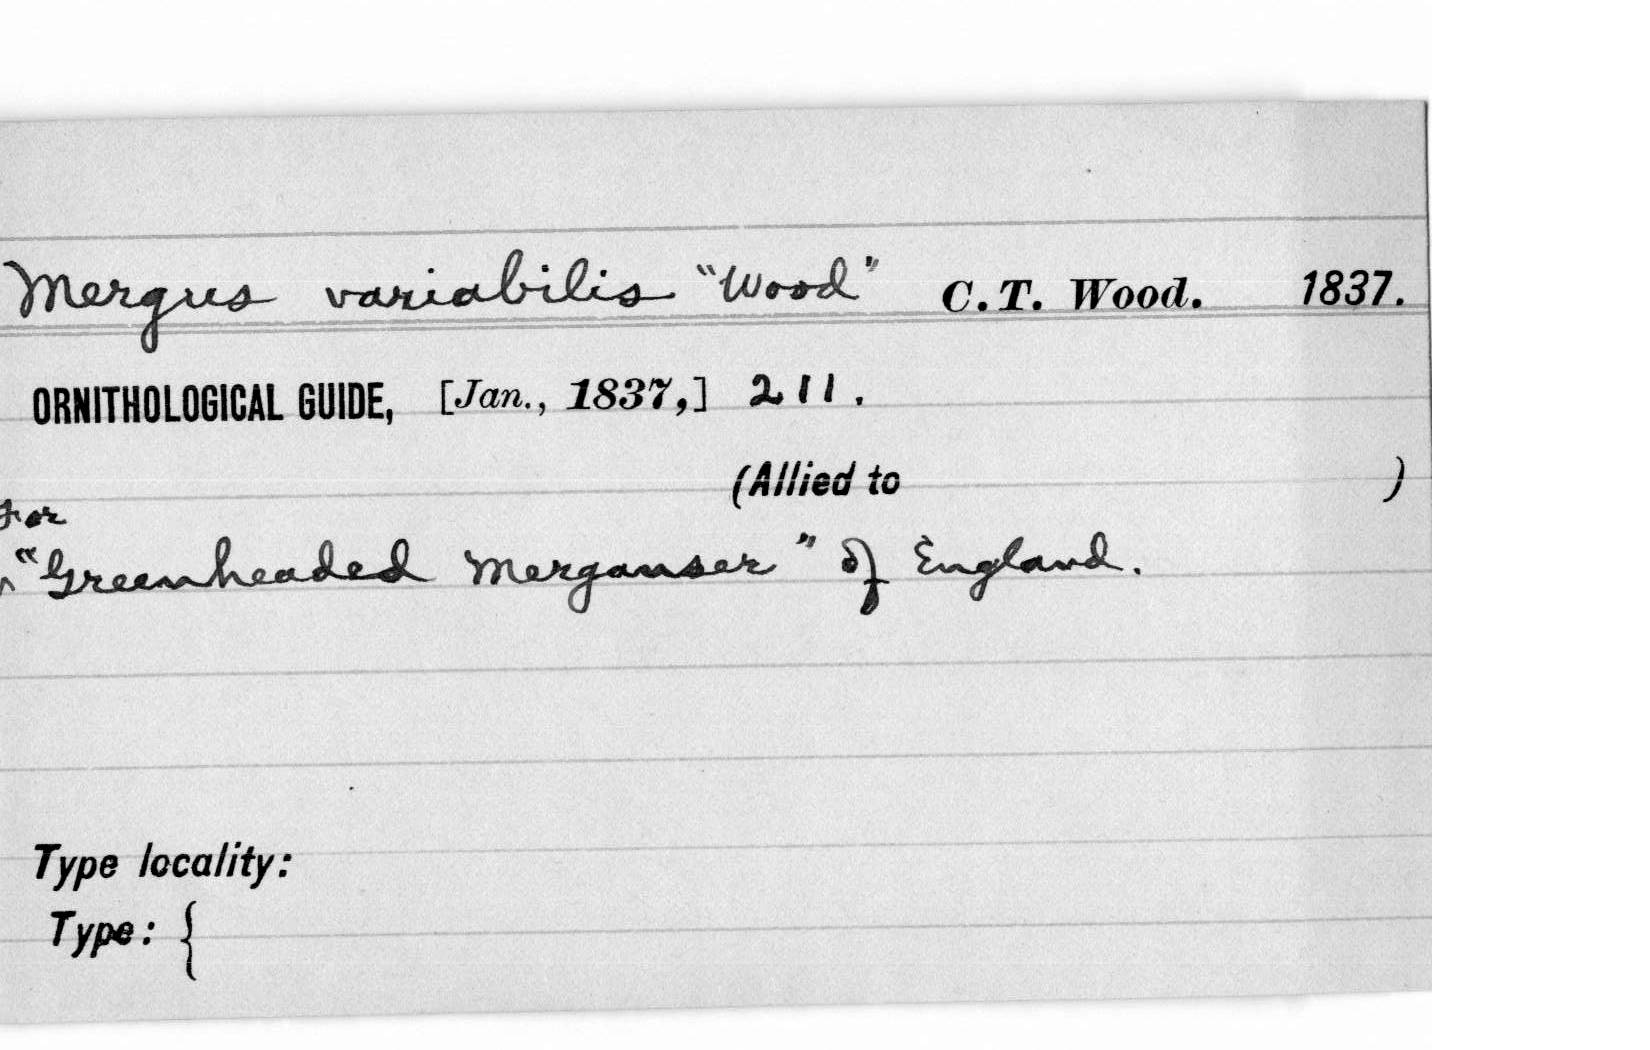 Mergus variabilis "Wood" C.T. Wood. 1837.
ORNITHOLOGICAL GUIDE, [Jan., 1837,] 211.
(Allied to )
For
"Greenheaded Merganser" of England.
Type locality:
Type: {